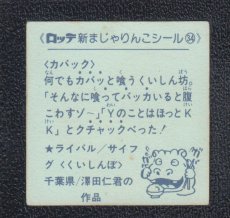 ロッテ 新まじゃりんこシール㉞
〈カバック〉
何でもカバッと喰うくいしん坊
「そんなに喰ってバッカいると腹
こわすゾ〜」「YのことはほっとK
K」とクチャックべった!
★ライバル/サイフ
グ〈くいしんぼ〉
千葉県/澤田仁君の
作品